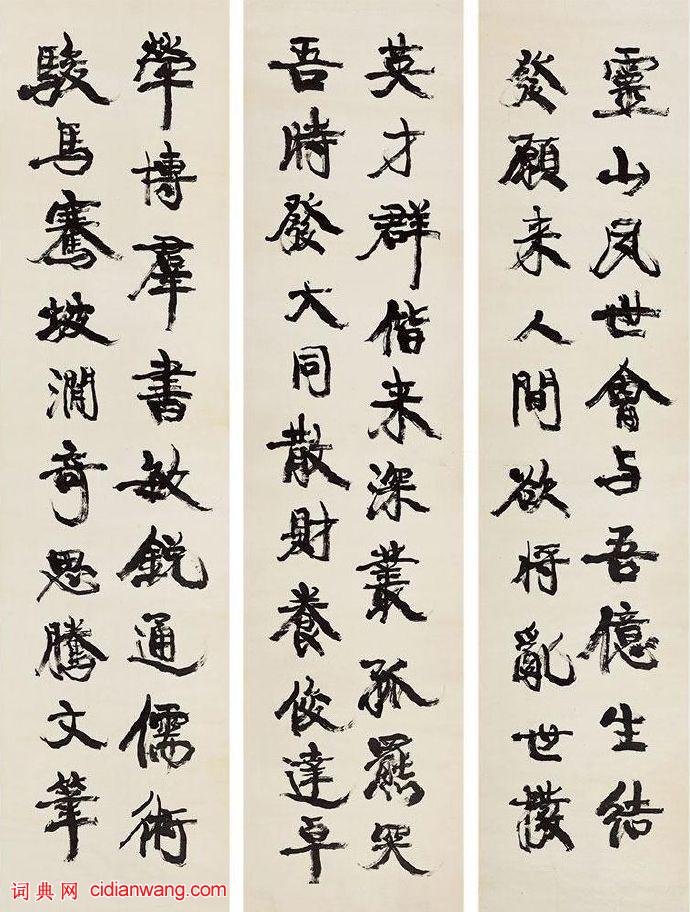 靈山夙世會与吾憶生結
發願来人間欲將亂世撥
英才群偕来深叢孤羆突
吾時發大同散財養俊達卓
犖博羣書敏銳通儒術
駿馬騫坡澗奇思騰文筆
词典网 cidianwang.com